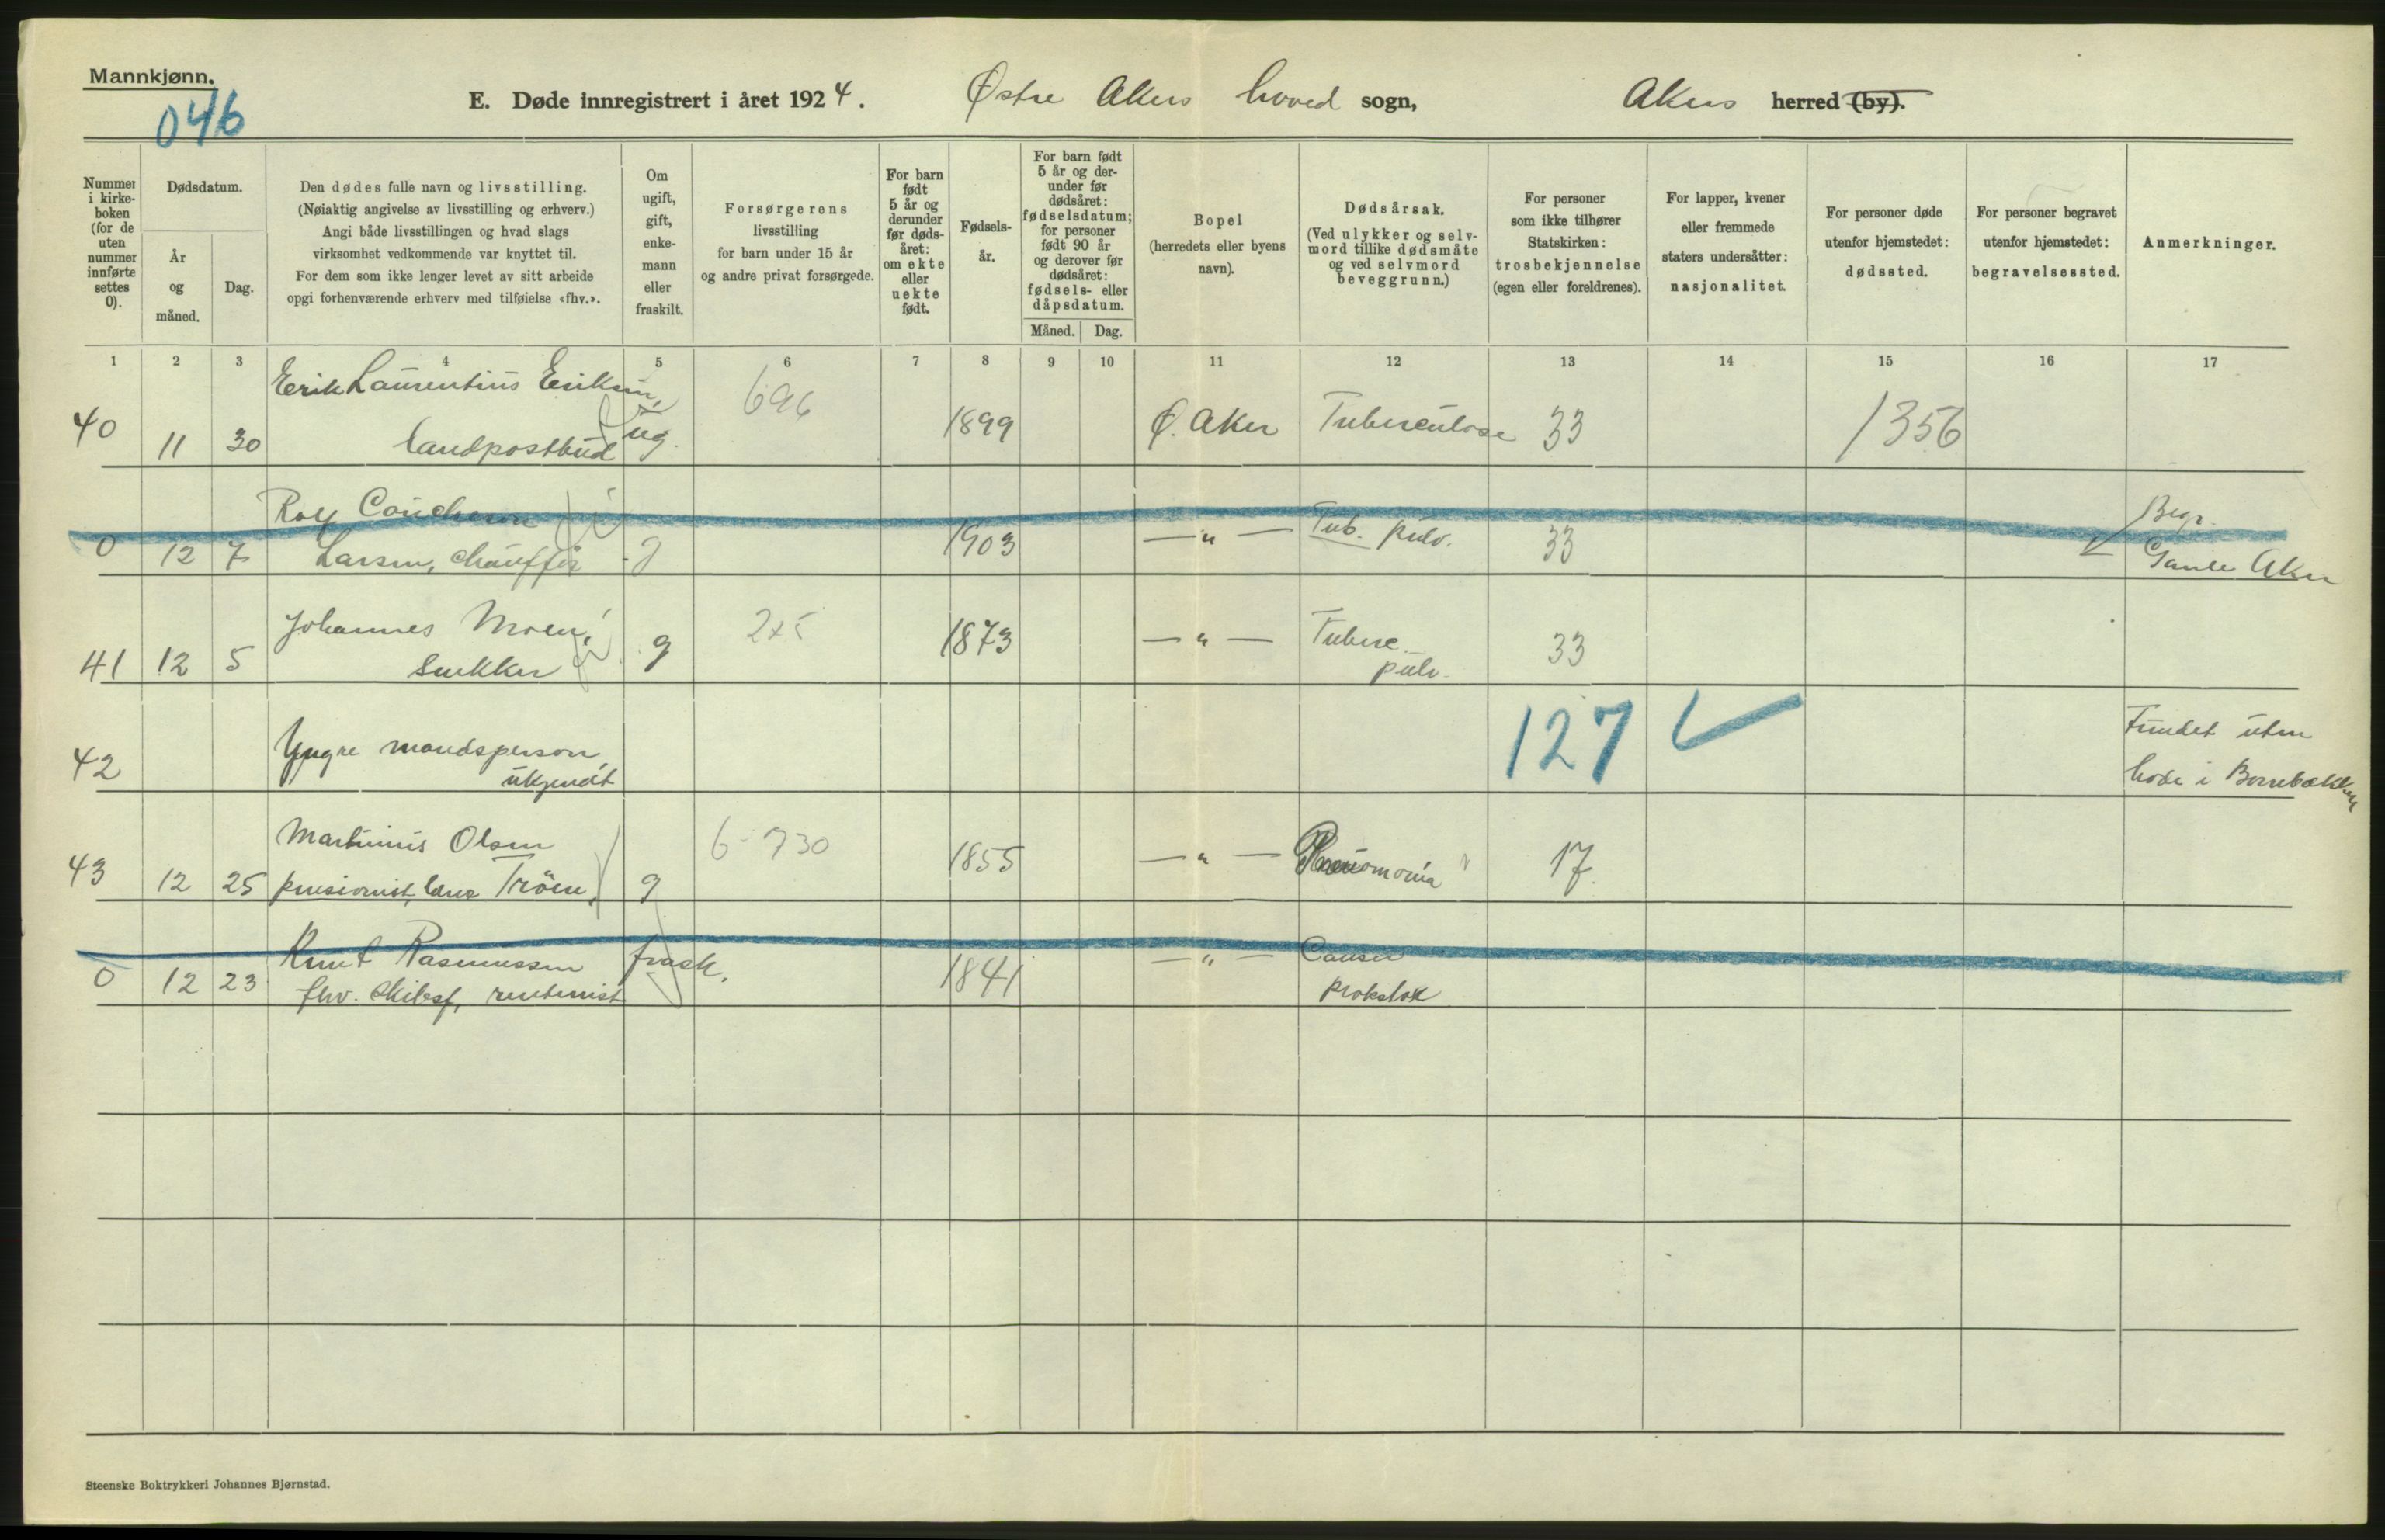 Mannkjønn.
046
E. Døde innregistrert i året 1924. Østre Akers hoved sogn, Akers herred (by).
Nummer i kirke- boken (for de uten nummer innførte settes 0).
Dødsdatum.
År og måned.
Dag.
Den dødes fulle navn og livsstilling.
(Nøiaktig angivelse av livsstilling og erhverv.)
Angi både livsstillingen og hvad slags
virksomhet vedkommende var knyttet til.
For dem som ikke lenger levet av sitt arbeide
opgi forhenværende erhverv med tilføielse «fhv.».
Om ugift, gift, enke- mann eller fraskilt.
Forsørgerens
livsstilling
for barn under 15 år
og andre privat forsørgede.
For barn født 5 år og derunder før døds- året: om ekte eller uekte født.
Fødsels- år.
For barn født 5 år og der- under før dødsåret: fødselsdatum; for personer født 90 år og derover før dødsåret: fødsels- eller dåpsdatum.
Måned. Dag.
Bopel
(herredets eller byens
navn).
Dødsårsak.
(Ved ulykker og selv-
mord tillike dødsmåte
og ved selvmord
beveggrunn.)
For personer
som ikke tilhører
Statskirken:
trosbekjennelse
(egen eller foreldrenes).
For lapper, kvener
eller fremmede
staters undersåtter:
nasjonalitet.
For personer døde
utenfor hjemstedet:
dødssted.
For personer begravet
utenfor hjemstedet:
begravelsessted.
Anmerkninger.
1 2 3 4 5 6 7 8 9 10 11 12 13 14 15 16 17
Erik Laurentius Eriksen,
696
40 11 30 landpostbud ug. 1899 Ø. Aker Tuberculose 33 1356
Rolf
Begr.
0 12 7 Larsen, chauffør g 1903 — " — Tub. pulv. 33 Gamle Aker
Johannes Moen,
41 12 5 Snekker g 1873 — " — Tuberc. pulv. 33
127
42 Yngre mandsperson,
ukjendt
Fundet uten
hode i
Martinius Olsen
6-730
43 12 25 pensionist, Trøen, g 1855 — " — Pneumonia 17.
Knut Rasmussen frask.
0 12 23 fhv. skibsf, rentenist 1841 — " — Cancer
Steenske Boktrykkeri Johannes Bjørnstad.